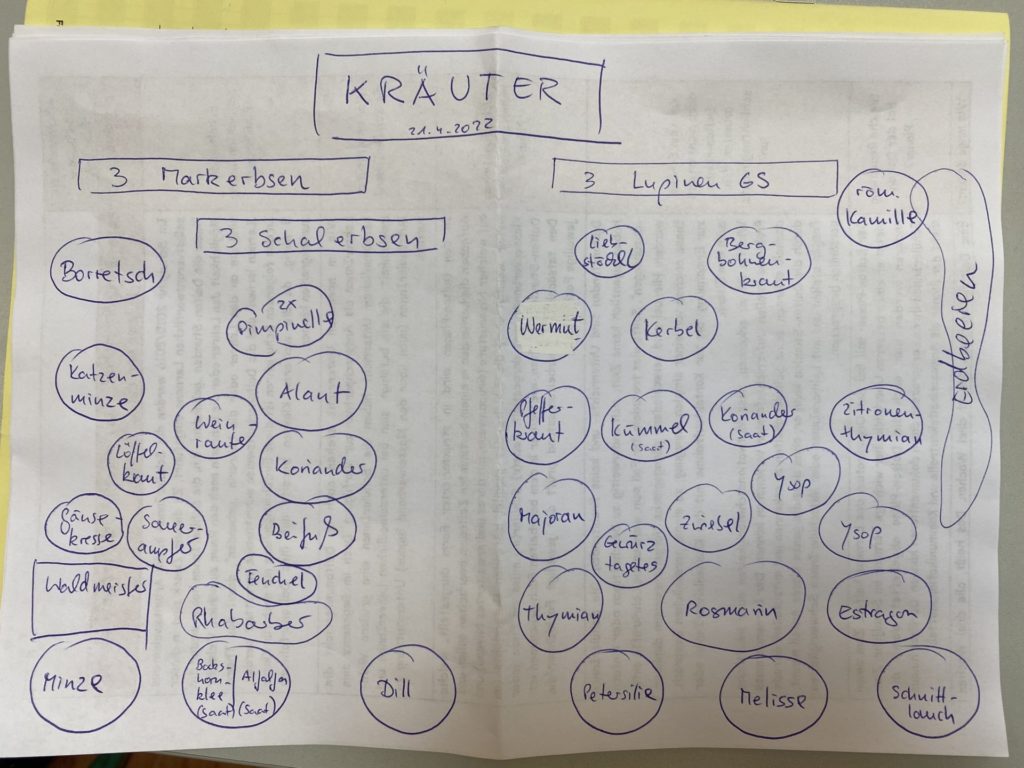 KRÄUTER
21.4.2022
3 Markerbsen
3 Schalerbsen
Borretsch
2x
Pimpinelle
Katzen-
minze
Alant
Wein-
raute
Löffel-
kraut
Koriander
Gänse-
kresse
Sauer-
ampfer
Beifuß
Fenchel
Waldmeister
Rhabarber
Minze
Boks-
horn-
klee
(Saat)
Alfalfa
(Saat)
Dill
3 Lupinen GS
röm.
Kamille
Erdbeeren
Lieb-
stöckl
Berg-
bohnen-
kraut
Wermut
Kerbel
Pfeffer-
kraut
Kümmel
(Saat)
Koriander
(Saat)
Zitronen-
thymian
Ysop
Majoran
Zwiebel
Ysop
Gewürz
tagetes
Thymian
Rosmarin
Estragon
Petersilie
Melisse
Schnitt-
lauch